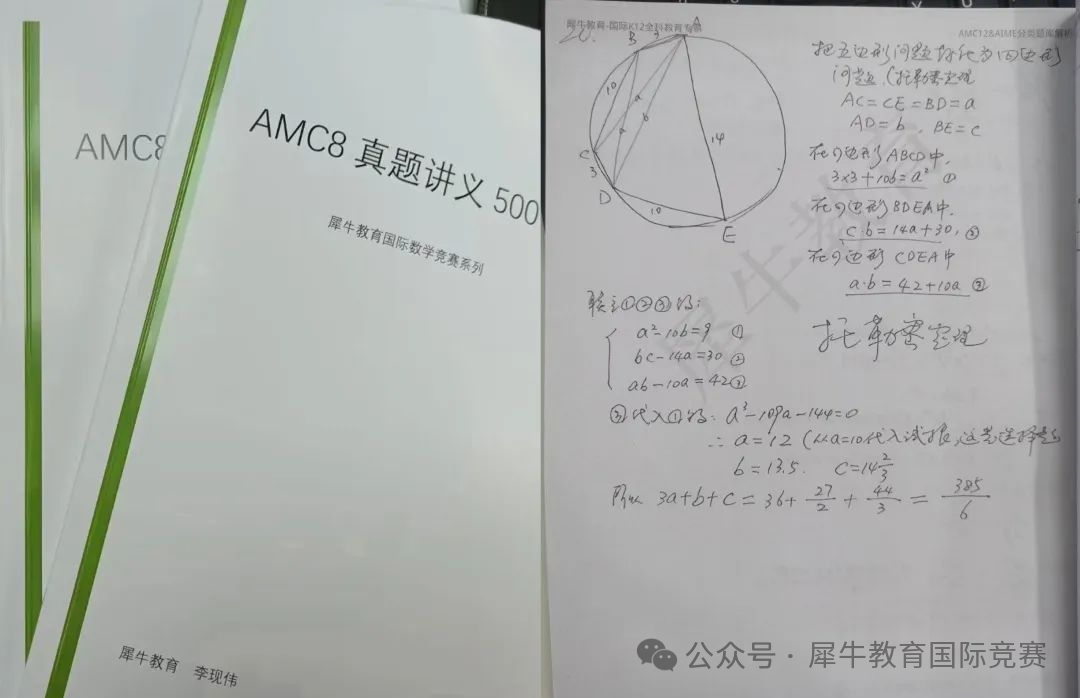 AMC8
AMC8 真题讲义 500
犀牛教育国际数学竞赛系列
犀牛教育 李现伟
犀牛教育-国际K12全科教育专家
AMC12&AIME分类题库解析
20.
A
B
3
10
a
a
b
14
C
3
D
10
E
把五边形问题转化为四边形
问题.(托勒密定理
AC=CE=BD=a
AD=b, BE=c
在四边形ABCD中,
3×3+10b=a² ①
在四边形BDEA中,
c·b=14a+30, ②
在四边形CDEA中
a·b=42+10a ③
托勒密定理
联立①②③得:
a²-10b=9 ①
bc-14a=30 ②
ab-10a=42 ③
③代入①得: a³-109a-420=0
∴ a=12 (从a=10代入试根,这是选择题
b=13.5. c=14 2/3
所以 3a+b+c=36+27/2+44/3=385/6
犀牛教育
公众号·犀牛教育国际竞赛